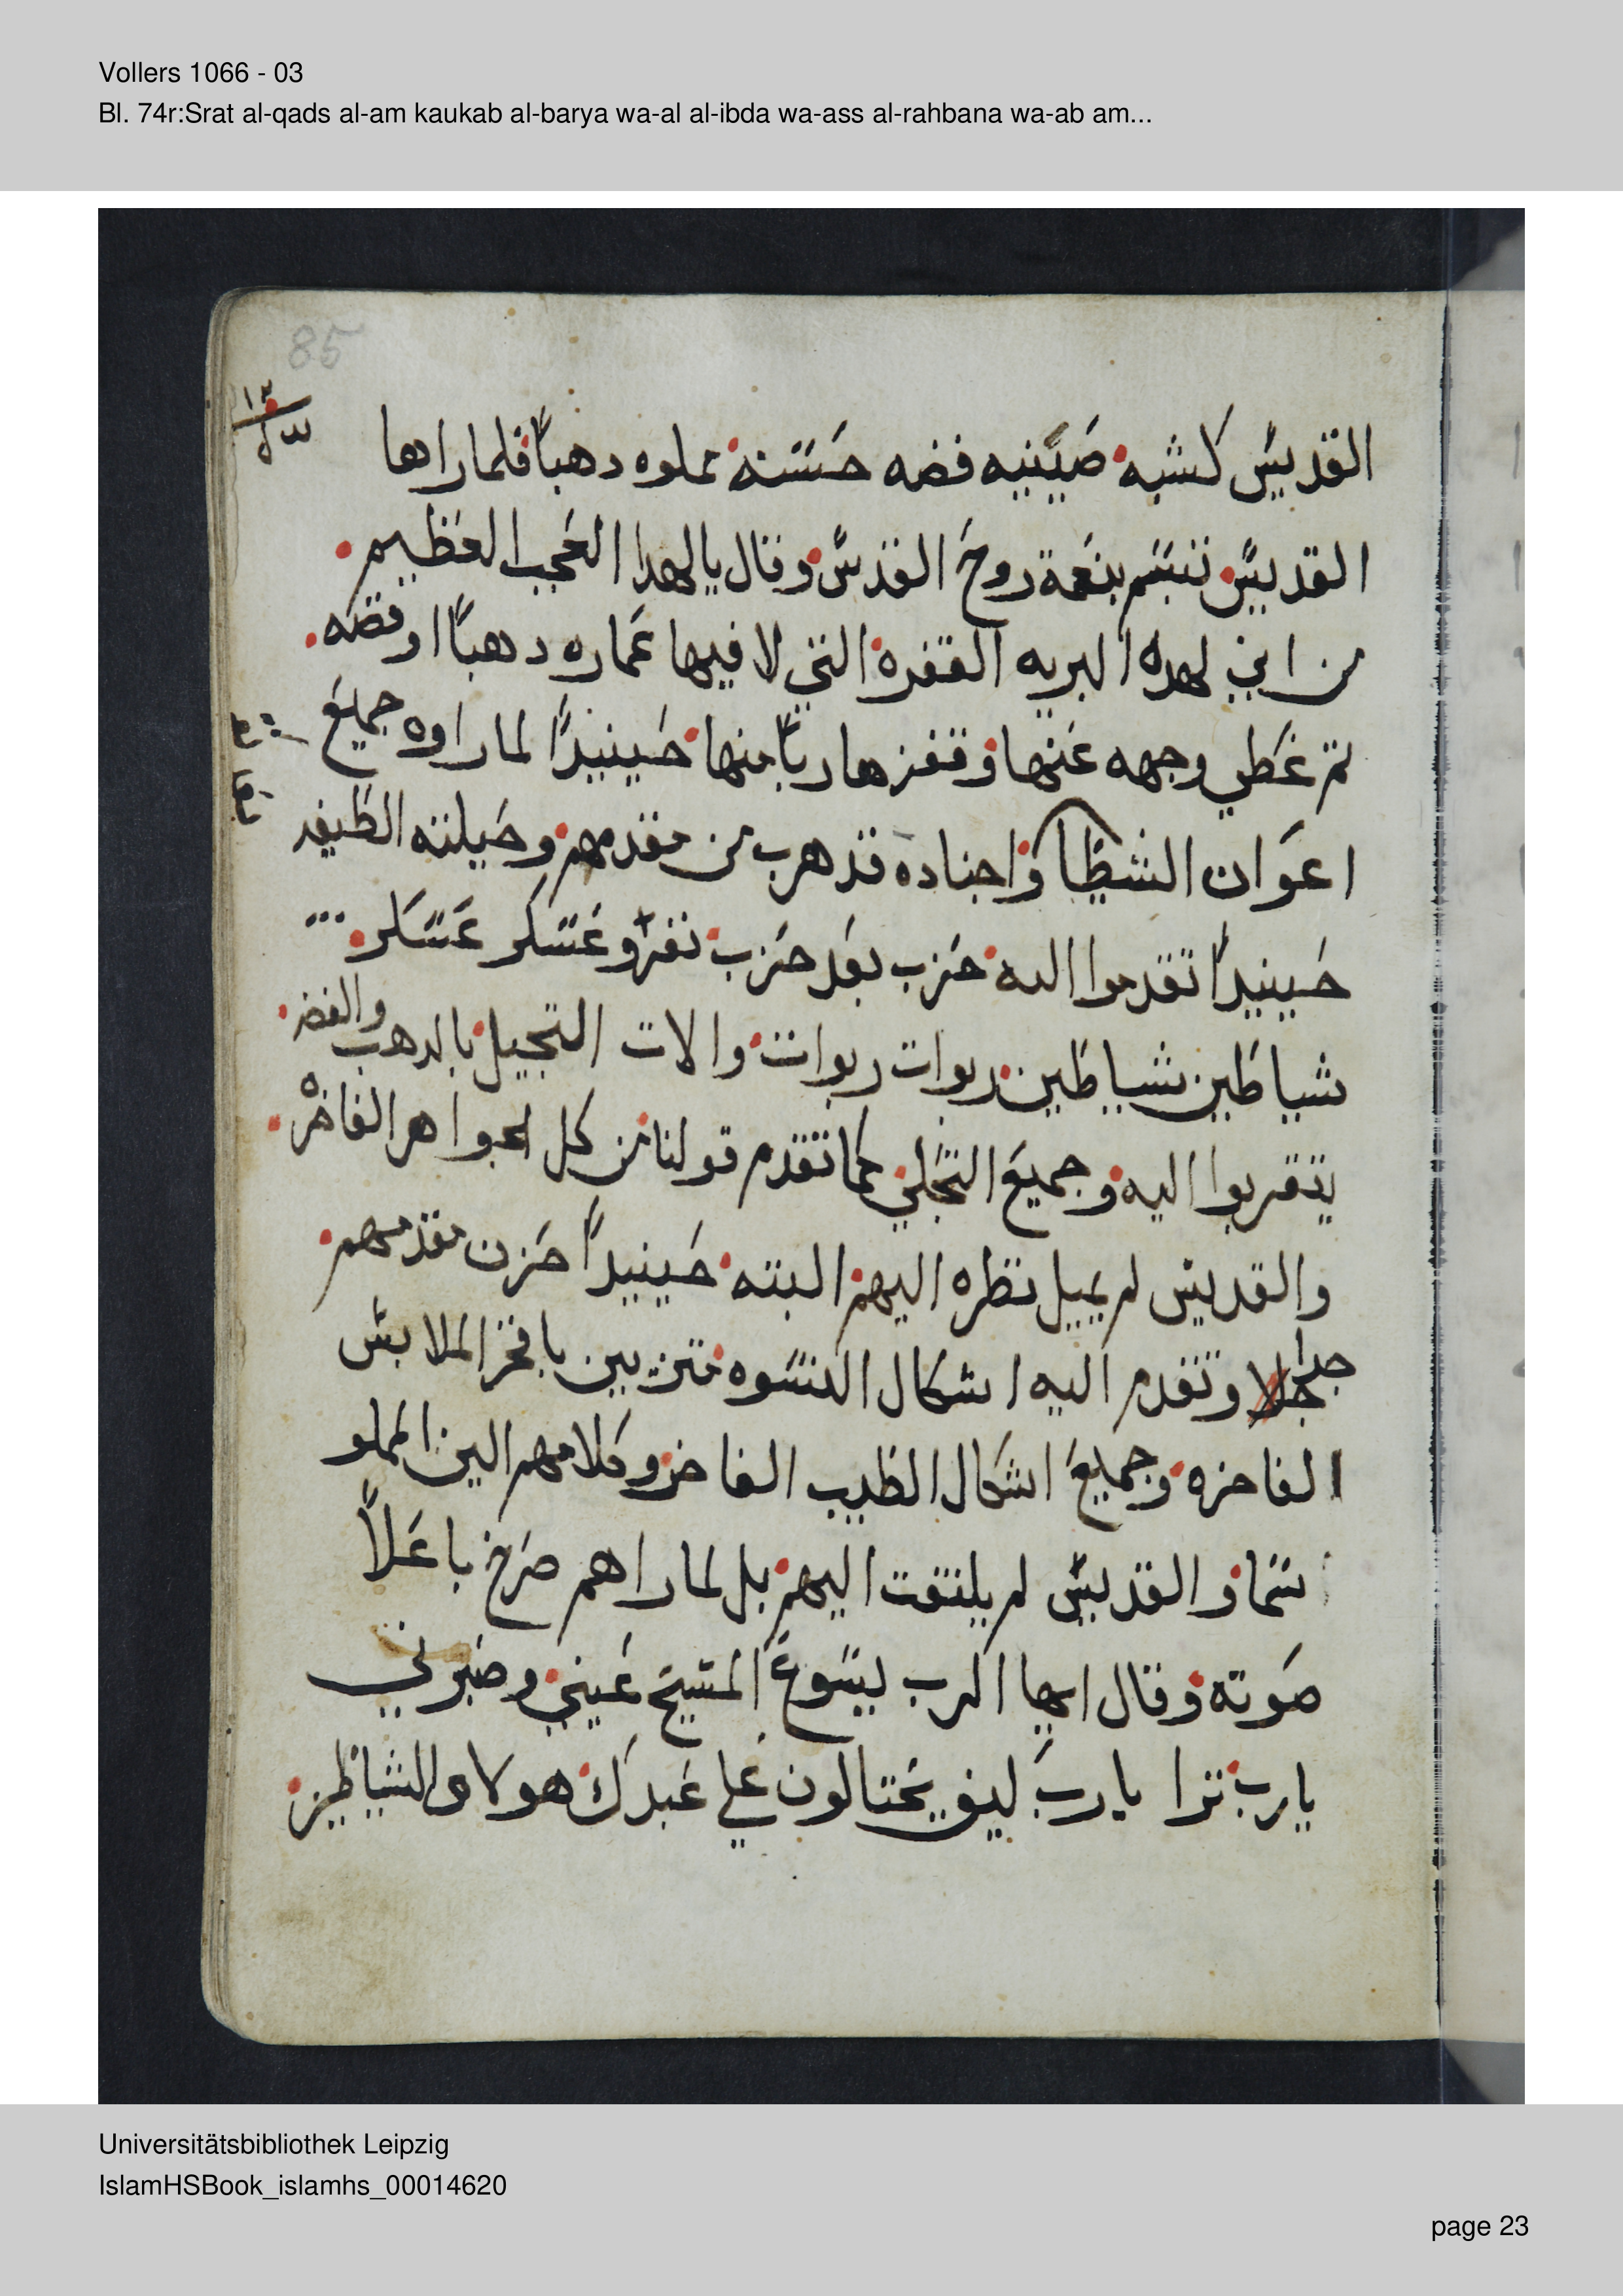 Vollers 1066 - 03
Bl. 74r:Srat al-qads al-am kaukab al-barya wa-al al-ibda wa-ass al-rahbana wa-ab am...
85
القديس كشبه صينيه فضه حسنه مملوه دهباً فلما راها
القديس تبسم بنعمة روح القدس وقال يا لهدا العجب العظيم
من اين لهده البريه القفره التي لا فيها عماره دهباً او فضه
تم غطي وجهه عنها وقفز هارباً منها حينيداً لما راوه جميع
اعوان الشيطا واجناده قد هرب من مقدمهم وحيلته
حينيداً تقدموا اليه حزب بعد حزب نفر وعسكر عسكر
شياطين شياطين ربوات ربوات والات التجيل بالدهب والفضه
يتقربوا اليه وجميع التحلي كما تقدم قولنا من كل الجواهر الفاخره
والقديس لم يميل نظره اليهم البته حينيداً حزن مقدمهم
جدا وتقدم اليه اشكال النسوه متزيين بافخر الملابس
الفاخره وجميع اشكال الطيب الفاخر وكلامهم الين المملو
سما والقديس لم يلتفت اليهم بل لما راهم صرخ باعلاً
صوته وقال ايها الرب يسوع المسيح عيني وصبرني
يارب ترا يارب كيف يحتالون علي عبدك هولاى الشياطين
Universitätsbibliothek Leipzig
IslamHSBook_islamhs_00014620
page 23